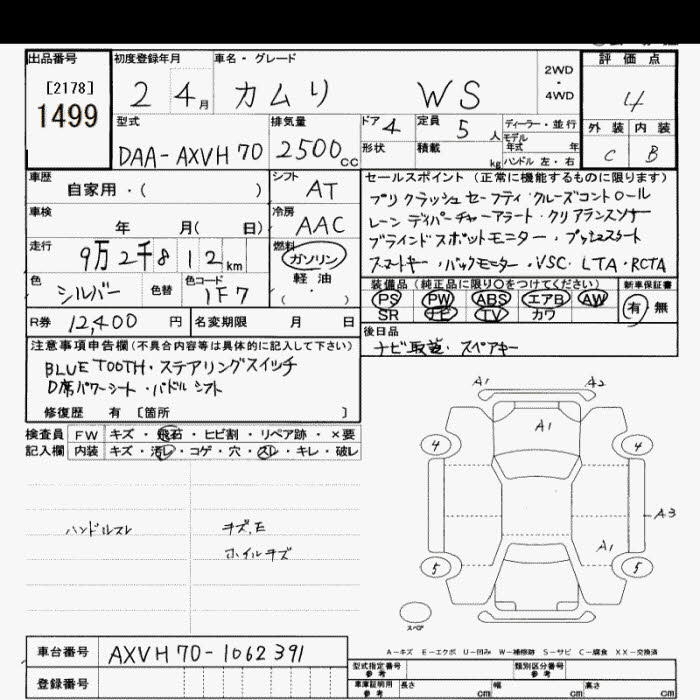 出品番号 初度登録年月 車名・グレード 評価点
[2178] 2 4月 カムリ WS 2WD・4WD 4
1499
型式 排気量 ドア 4 定員 5人 ディーラー・並行 外装 内装
DAA-AXVH70 2500cc 形状 積載 kg モデル年式 年 C B
ハンドル左・右
車歴 自家用・( ) シフト AT セールスポイント (正常に機能するものに限ります)
プリクラッシュセーフティ・クルーズコントロール
車検 年 月( 日) 冷房 AAC レーンディパーチャーアラート・クリアランスソナー
走行 9万2千812km 燃料 ガソリン ブラインドスポットモニター・プッシュスタート
軽油 スマートキー・バックモニター・VSC・LTA・RCTA
・( )
色 シルバー 色替 色コード 1F7 装備品 (純正品に限り○をつけてください) 新車保証書
PS PW ABS エアB AW 有・無
SR ナビ TV カワ
R券 12,400円 名変期限 月 日 後日品
注意事項申告欄(不具合内容等は具体的に記入して下さい) ナビ取説・スペアキー
BLUETOOTH・ステアリングスイッチ
D席パワーシート・パドルシフト
修復歴 有 [箇所 ]
検査員 FW キズ・飛石・ヒビ割・リペア跡・×要
記入欄 内装 キズ・汚レ・コゲ・穴・スレ・キレ・破レ
ハンドルスレ キズ,E
ホイルキズ
A1 A2
A1
4 4
A3
A1
5 5
スペア
A-キズ E-エクボ U-凹み W-補修跡 S-サビ C-腐食 XX-交換済
車台番号 AXVH70-1062391 型式指定番号 参考 類別区分番号 参考
登録番号 車庫証明用 参考 長さ cm 幅 cm 高さ cm